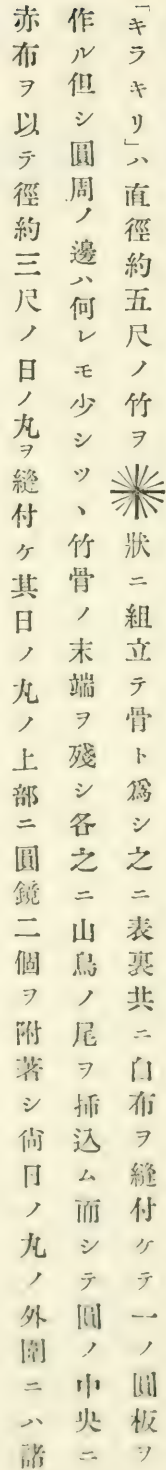 「キラキリ」ハ直徑約五尺ノ竹ヲ狀ニ組立テ骨ト爲シ之ニ表裏共ニ白布ヲ縫付ケテ一ノ圓板ヲ
作ル但シ圓周ノ邊ハ何レモ少シツヽ竹骨ノ末端ヲ殘シ各之ニ山鳥ノ尾ヲ揷込ム而シテ圓ノ中央ニ
赤布ヲ以テ徑約三尺ノ日ノ丸ヲ縫付ケ其日ノ丸ノ上部ニ圓鏡二個ヲ附著シ尙日ノ丸ノ外圍ニハ諸